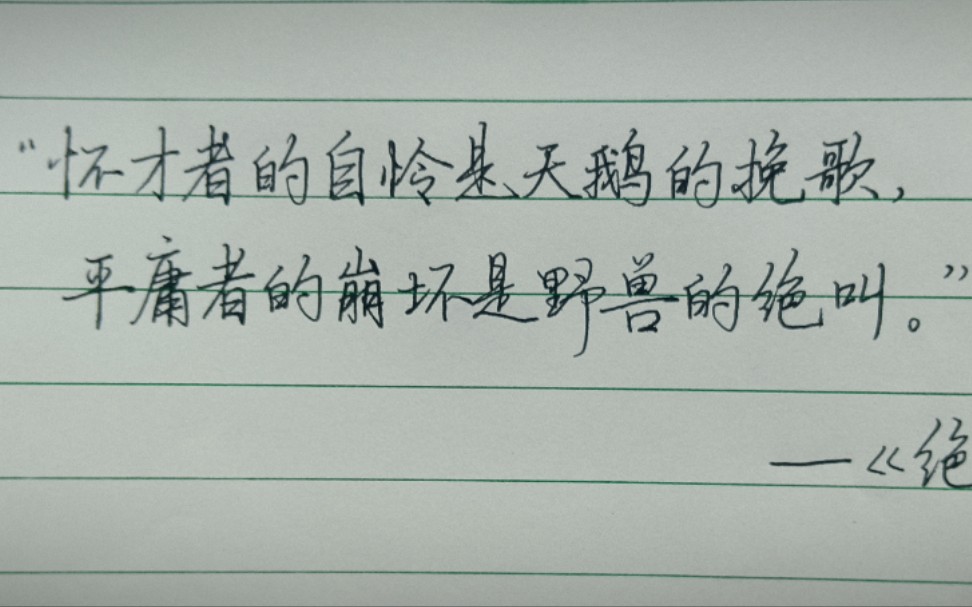 “怀才者的自怜是天鹅的挽歌，
平庸者的崩坏是野兽的绝叫。”
—《绝